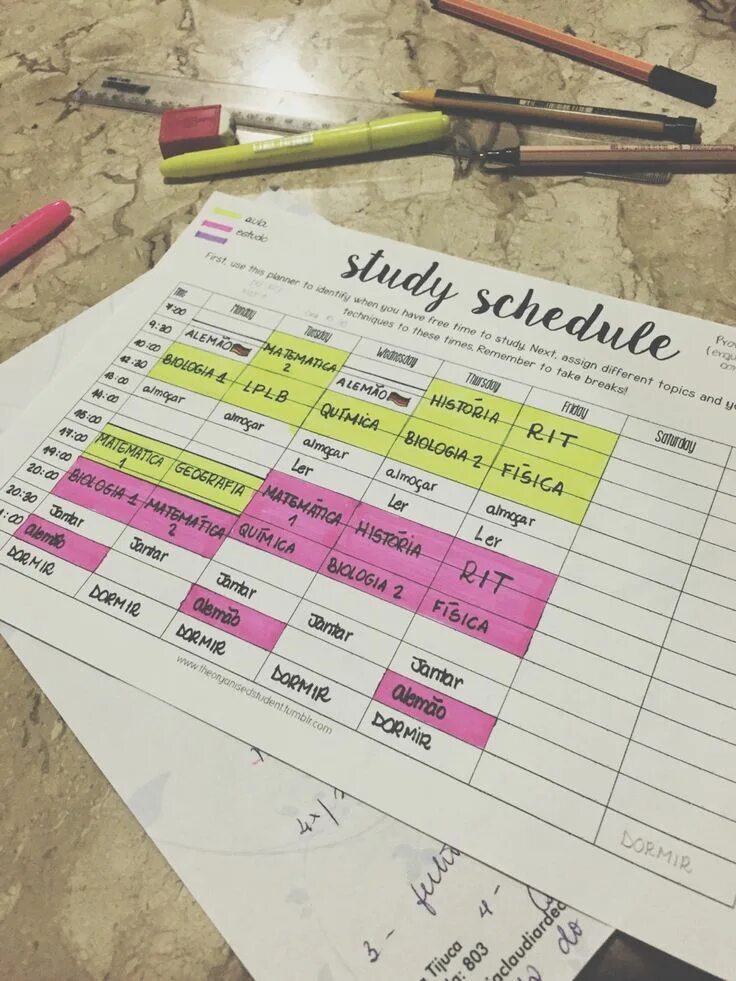 aula
estudo
study schedule
First, use this planner to identify when you have free time to study. Next, assign different topics and
techniques to these times. Remember to take breaks!
Time Monday Tuesday Wednesday Thursday Friday Saturday
7:00 ALEMÃO MATEMATICA 2 ALEMÃO HISTÓRIA RIT
9:30
10:00 BIOLOGIA 1 LPLB QUÍMICA BIOLOGIA 2 FÍSICA
12:30 almoçar almoçar almoçar almoçar almoçar
13:00
14:00 Ler Ler Ler
15:00 MATEMATICA 1 GEOGRAFIA MATEMÁTICA 1 HISTÓRIA RIT
17:00 BIOLOGIA 1 MATEMÁTICA 2 QUÍMICA BIOLOGIA 2 FÍSICA
19:00
20:00 Jantar Jantar Jantar Jantar Jantar
20:30 alemão alemão alemão
1:00 DORMIR DORMIR DORMIR DORMIR DORMIR DORMIR
www.theorganisedstudent.tumblr.com
3 -
4 -
do
Tijuca
: 803